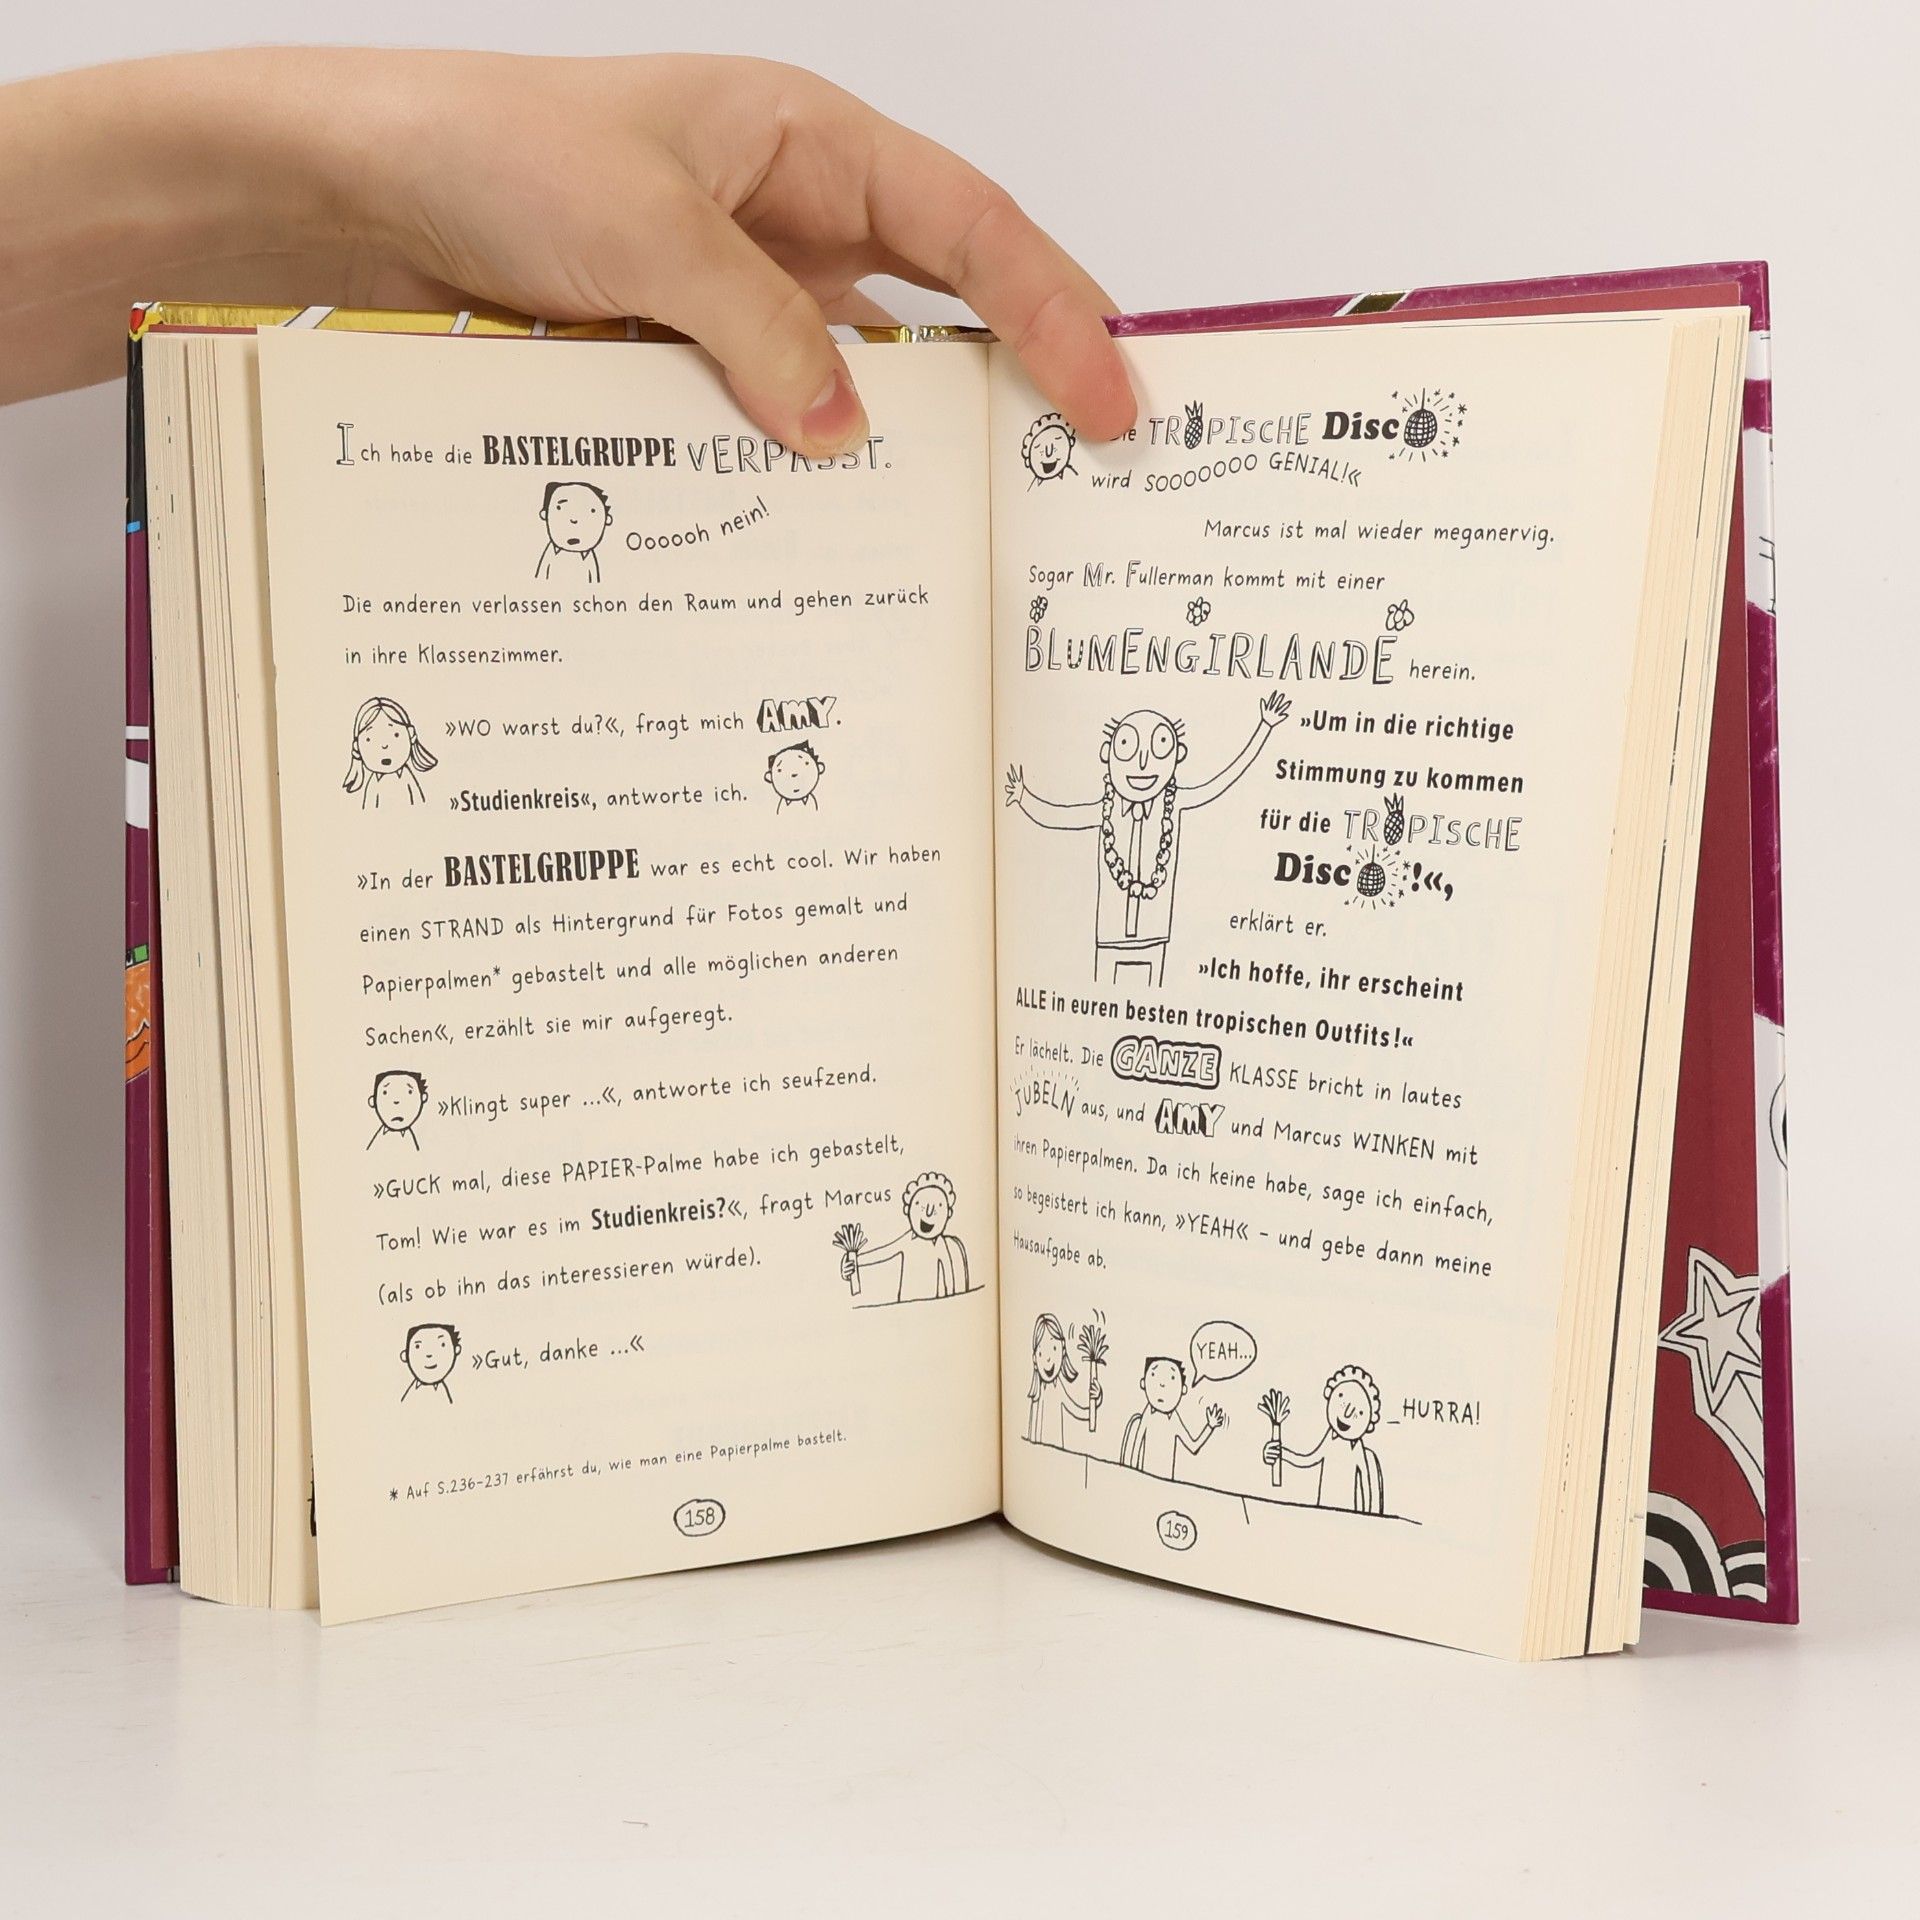 Ich habe die BASTELGRUPPE VERPASST.
Oooooh nein!
Die anderen verlassen schon den Raum und gehen zurück
in ihre Klassenzimmer.
»WO warst du?«, fragt mich AMY.
»Studienkreis«, antworte ich.
»In der BASTELGRUPPE war es echt cool. Wir haben
einen STRAND als Hintergrund für Fotos gemalt und
Papierpalmen* gebastelt und alle möglichen anderen
Sachen«, erzählt sie mir aufgeregt.
»Klingt super ...«, antworte ich seufzend.
»GUCK mal, diese PAPIER-Palme habe ich gebastelt,
Tom! Wie war es im Studienkreis?«, fragt Marcus
(als ob ihn das interessieren würde).
»Gut, danke ...«
* Auf S.236-237 erfährst du, wie man eine Papierpalme bastelt.
158
TROPISCHE Disco
wird SOOOOOOO GENIAL!«
Marcus ist mal wieder meganervig.
Sogar Mr. Fullerman kommt mit einer
BLUMENGIRLANDE herein.
»Um in die richtige
Stimmung zu kommen
für die TROPISCHE
Disco!«,
erklärt er.
»Ich hoffe, ihr erscheint
ALLE in euren besten tropischen Outfits!«
Er lächelt. Die GANZE KLASSE bricht in lautes
JUBELN aus, und AMY und Marcus WINKEN mit
ihren Papierpalmen. Da ich keine habe, sage ich einfach,
so begeistert ich kann, »YEAH« – und gebe dann meine
Hausaufgabe ab.
YEAH...
HURRA!
159